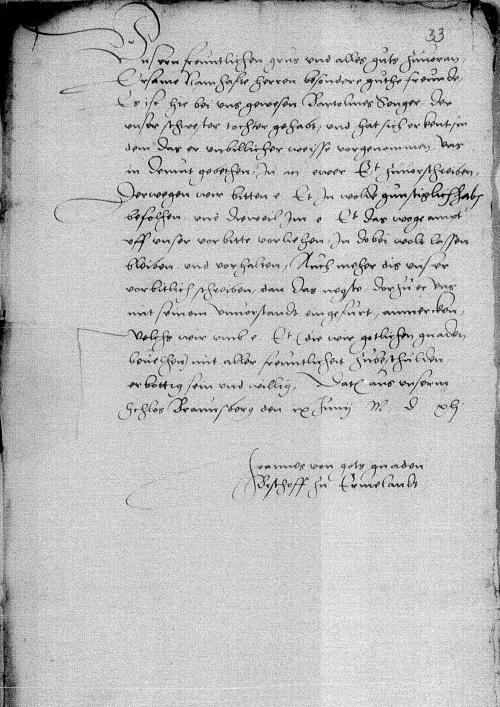 33
Unsern freuntlichen grus und alles guts zuuoran,
Ersame Namhafte herren besondere guthe freunde,
Es ist hie bei uns gewesen Bartolmes der
unser schwester tochter gehabt, und hat sich erkent, in
dem das er unbillicher weisse vorgenommen, uns
in demut gebethen, In an ewer Et zuuorschreiben,
Derwegen wir bitten e Et In wolde gunstiglich hab
befolhen, und dieweil Im e Et das wege ampt
uff unser vorbitte vorliehen, In dobei wolt lassen
bleiben, und vorhalten, Auch meher dis unser
vorbitlich schreiben, dan das negste, dorzu er uns
mit seinem unuorstandt eingefurt, anmercken,
Welchs wir umb e. Et (die wir gotlichen gnaden
beuelhen) mit aller freuntlicheit zubeschulden
erbottig sein und willig, Dat aus unserm
Schlos Braunsberg den ix Junij M D xlj
Joannes von gots gnaden
Bischoff zu Ermelandt